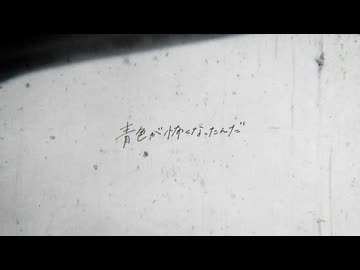 青色が怖くなったんだ